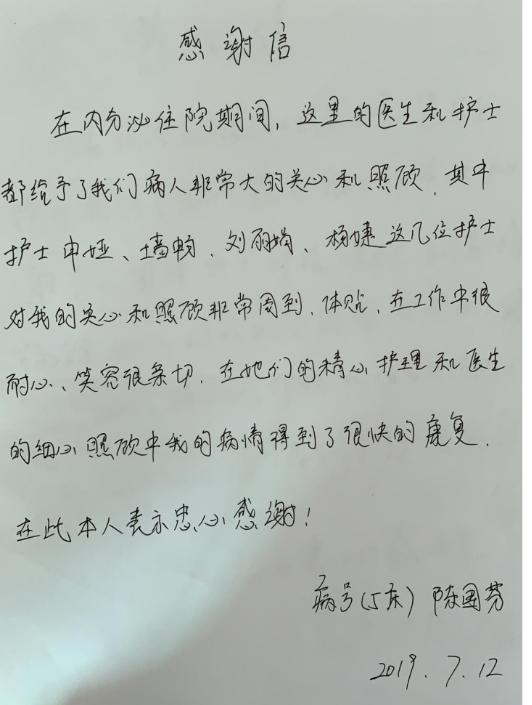 感谢信
在内分泌住院期间，这里的医生和护士
都给予了我们病人非常大的关心和照顾．其中
护士申娅、墙畅、刘丽娟、杨婕这几位护士
对我的关心和照顾非常周到．体贴．在工作中很
耐心、笑容很亲切．在她们的精心护理和医生
的细心照顾中我的病情得到了很快的康复．
在此本人表示忠心感谢！
病号(5床) 陈国芳
2019．7．12